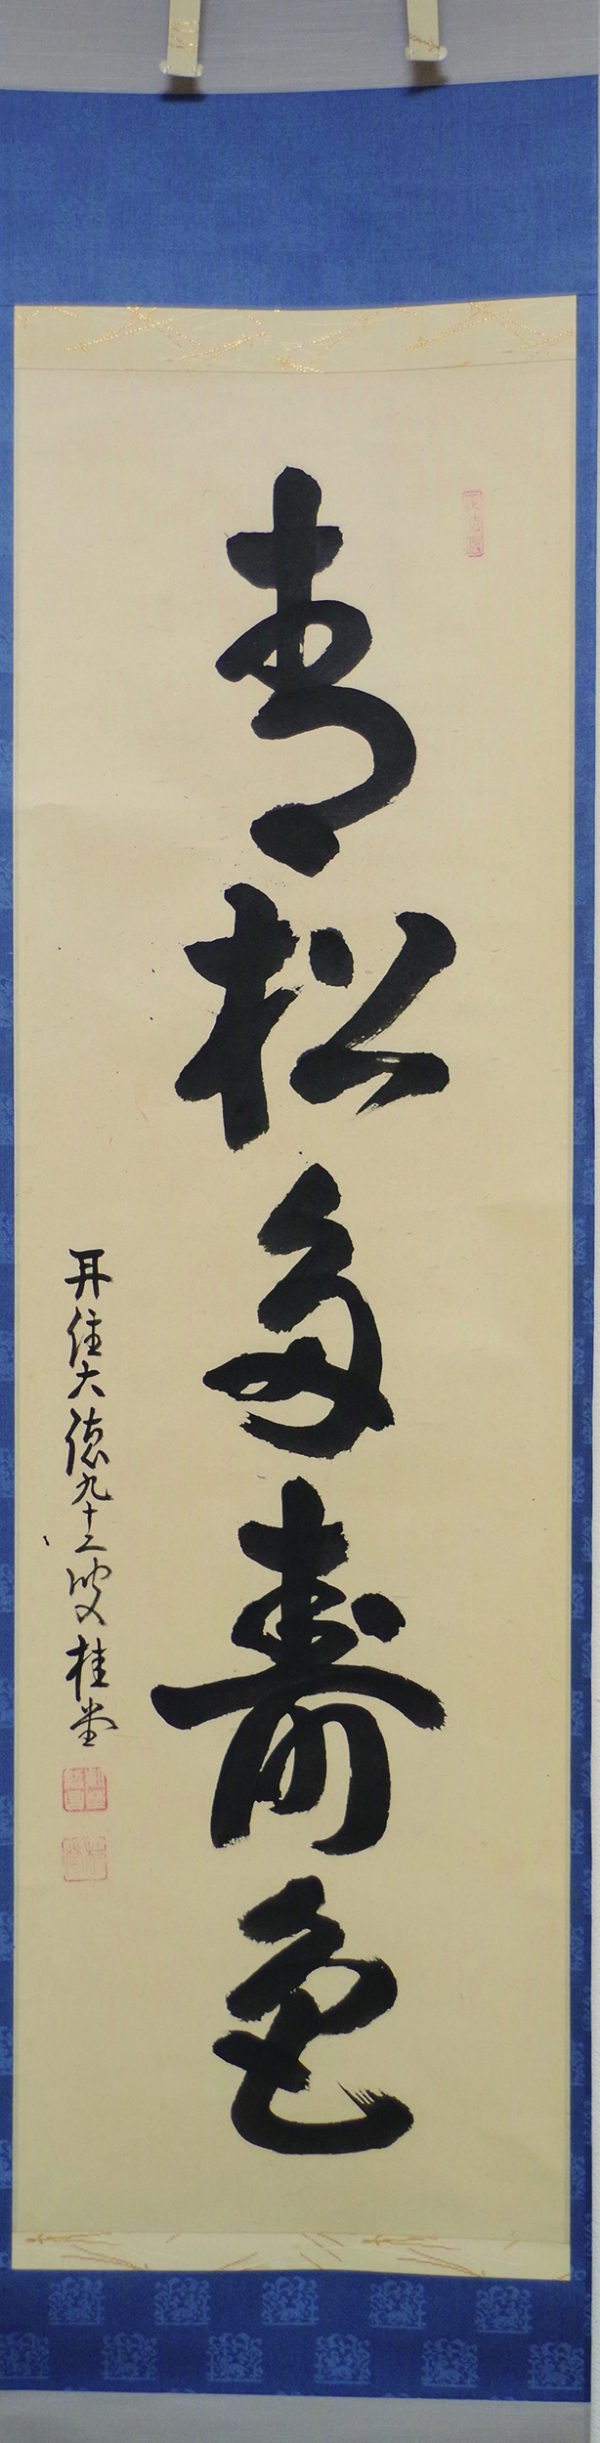 青松多壽色
再住大徳九十二叟桂堂